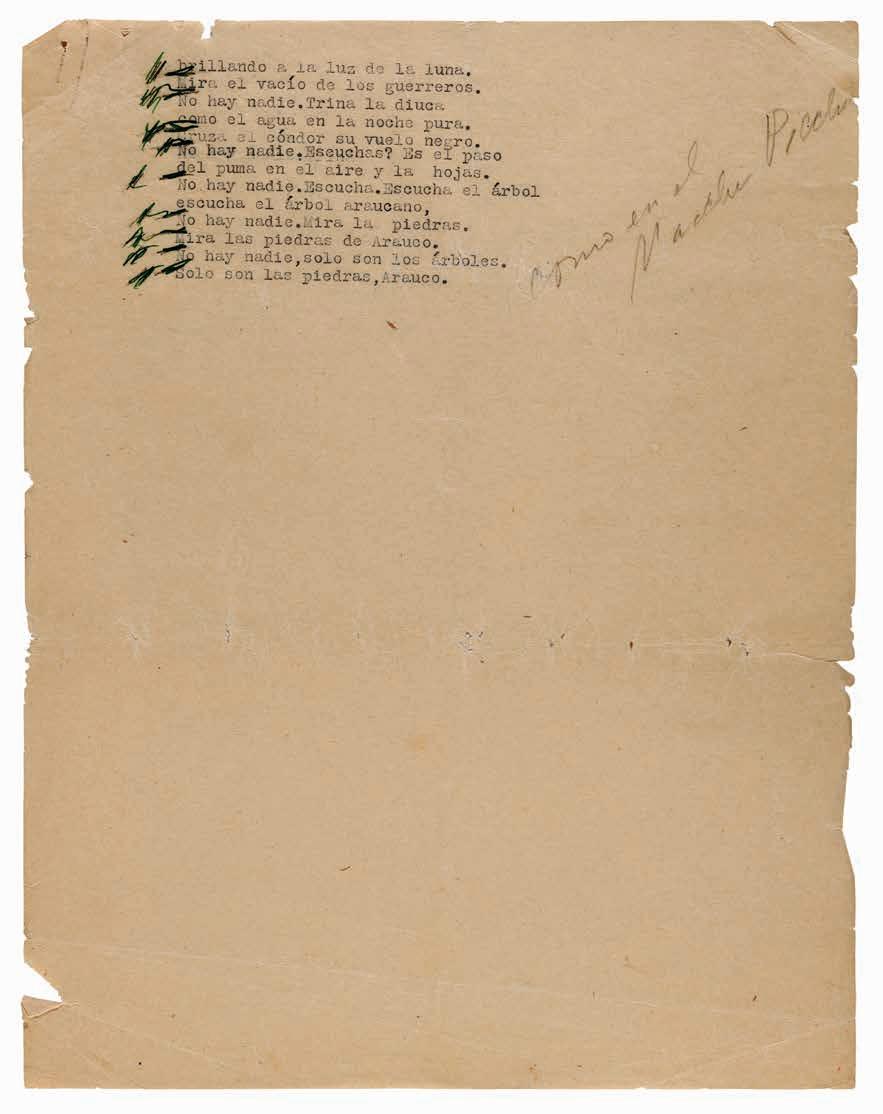 brillando a la luz de la luna.
Mira el vacío de los guerreros.
No hay nadie.Trina la diuca
como el agua en la noche pura.
Cruza el cóndor su vuelo negro.
No hay nadie.Escuchas? Es el paso
del puma en el aire y la hojas.
No hay nadie.Escucha.Escucha el árbol
escucha el árbol araucano,
No hay nadie.Mira la piedras.
Mira las piedras de Arauco.
No hay nadie,solo son los árboles.
Solo son las piedras,Arauco.
como en el
Macchu Picchu